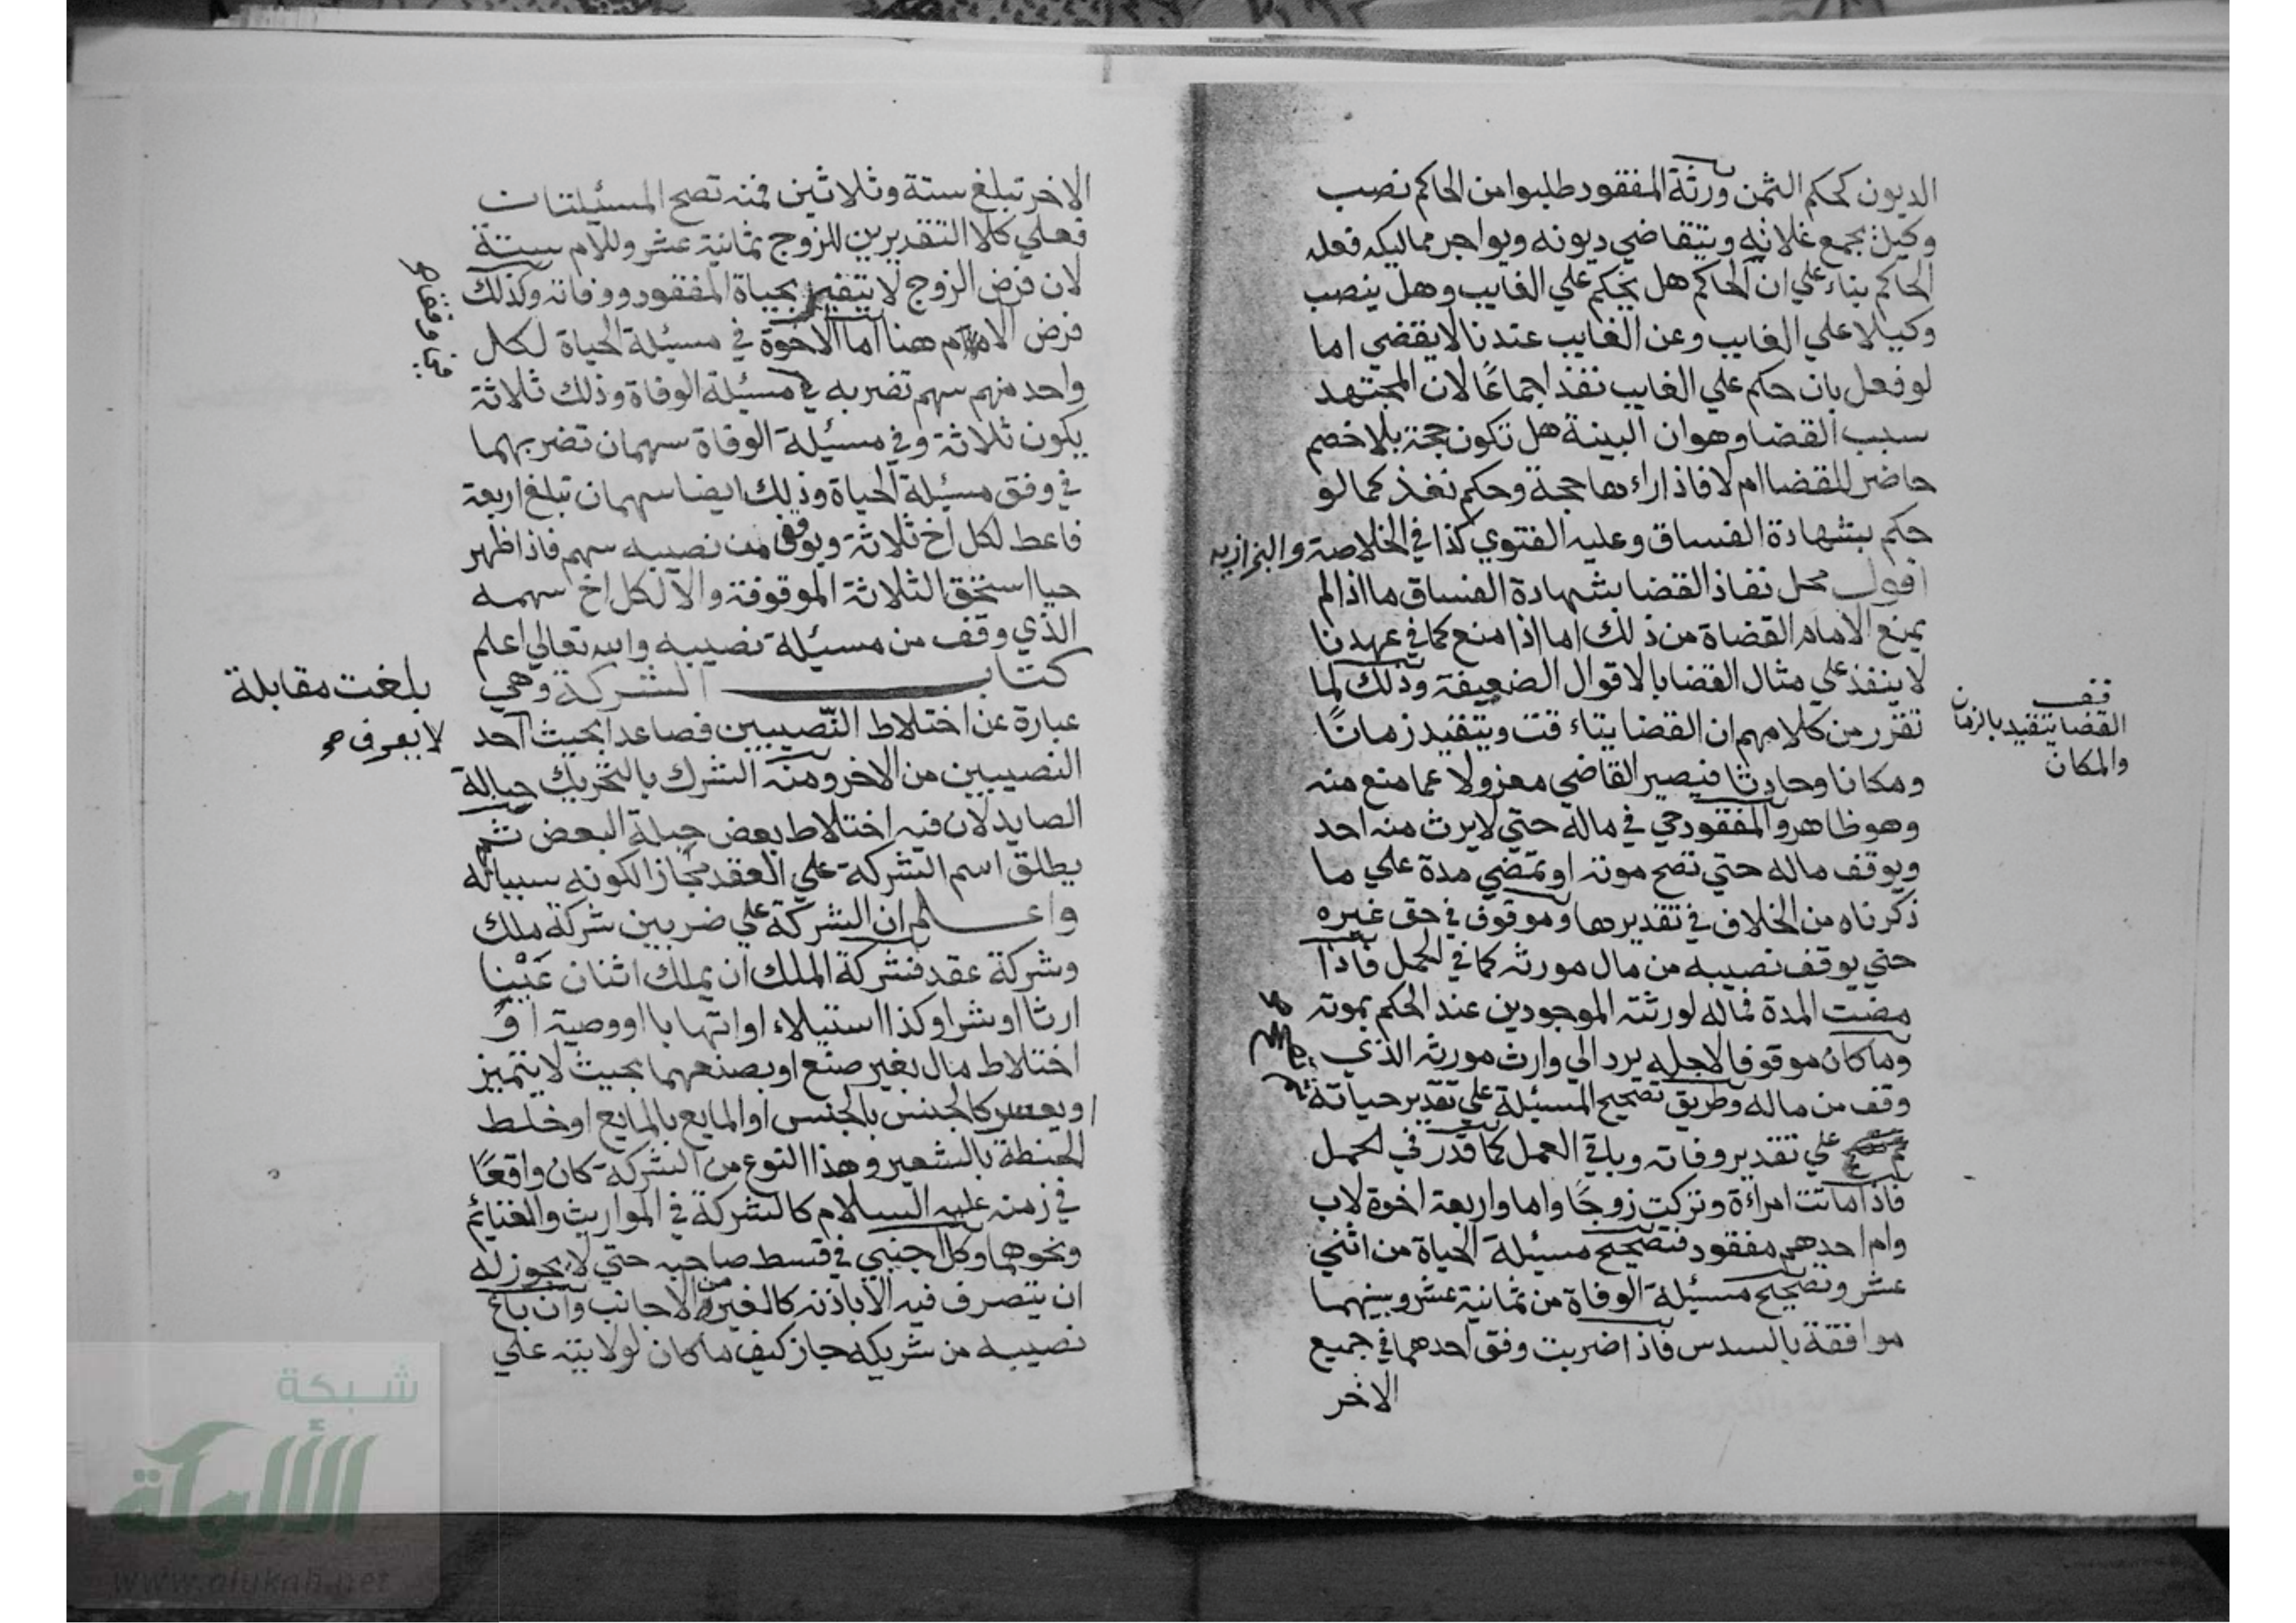 الديون كحكم الثمن ورثة المفقود طلبوا من الحاكم نصب
وكيل بجمع غلاته ويتقاضي ديونه ويواجر مماليكه فعله
الحاكم بناء علي ان الحاكم هل يحكم علي الغايب وهل ينصب
وكيلا علي الغايب وعن الغايب عندنا لا يقضي اما
لو فعل بان حكم علي الغايب نفذ اجماعًا لان المجتهد
سبب القضا وهو ان البينة هل تكون حجة بلا خصم
حاضر للقضا ام لا فاذا راءها حجة وحكم نفذ كما لو
حكم بشهادة الفساق وعليه الفتوي كذا في الخلاصة والبزازيه
اقول محل نفاذ القضا بشهادة الفساق ما اذا لم
يمنع الامام القضاة من ذلك اما اذا منع كما في عهدنا
لا ينفذ علي مثال القضا بالاقوال الضعيفة وذلك لما
تقرر من كلامهم ان القضا يتاءقت ويتقيد زمانًا
ومكانا وحادثا فيصير القاضي معزولا عما منع منه
وهو ظاهر والمفقود حي في ماله حتي لا يرث منه احد
ويوقف ماله حتي تصح موته او تمضي مدة علي ما
ذكرناه من الخلاف في تقديرها وموقوف في حق غيره
حتي يوقف نصيبه من مال مورثه كما في الحمل فاذا
مضت المدة فماله لورثته الموجودين عند الحكم بموته
وما كان موقوفا لاجله يرد الي وارث مورثه الذي
وقف من ماله وطريق تصحيح المسئلة علي تقدير حياته
علي تقدير وفاته وباقي العمل كما قدر في الحمل
فاذا ماتت امراءة وتركت زوجًا واما واربعة اخوة لاب
وام احدهم مفقود فتصحيح مسيئلة الحياة من اثني
عشر وتصحيح مسيئلة الوفاة من ثمانية عشر وبينهما
موافقة بالسدس فاذا ضربت وفق احدهما في جميع
الاخر
قف
القضا يتقيد بالزمان
والمكان
الاخر تبلغ ستة وثلاثين فمنه تصح المسئيلتات
فعلي كلا التقديرين للزوج ثمانية عشر وللام ستة
لان فرض الزوج لا يتغير بحياة المفقود ووفاته وكذلك
فرض الام هنا اما الاخوة في مسيئلة الحياة لكل
واحد منهم سهم تضربه في مسيئلة الوفاة وذلك ثلاثة
يكون ثلاثة وفي مسيئلة الوفاة سهمان تضربهما
في وفق مسيئلة الحياة وذلك ايضا سهمان تبلغ اربعة
فاعط لكل اخ ثلاثة ويوقف من نصيبه سهم فاذا ظهر
حيا استحق الثلاثة الموقوفة والا لكل اخ سهمه
الذي وقف من مسيئلة نصيبه والله تعالي اعلم
كتاب الشركة وهي
عبارة عن اختلاط النّصيبين فصاعدا بحيث احد
النصيبين من الاخر ومنه الشرك بالتحريك حبالة
الصايد لان فيه اختلاط بعض حبله البعض ثم
يطلق اسم الشركة علي العقد مجازا لكونه سببا له
واعلم ان الشركة علي ضربين شركة ملك
وشركة عقد فشركة الملك ان يملك اثنان عَيْنا
ارثا او شرا وكذا استيلاء او اتهابا او وصية او
اختلاط مال بغير صنع او بصنعهما بحيث لا يتميز
او يعسر كالجنس بالجنس او المايع بالمايع او خلط
الحنطة بالشعير وهذا النوع من الشركة كان واقعًا
في زمنه عليه السلام كالشركة في المواريث والغنائم
ونحوهما وكل اجنبي في قسط صاحبه حتي لا يجوز له
ان يتصرف فيه الا باذنه كالغير من الاجانب وان باع
نصيبه من شريكه جاز كيف ما كان لولايته علي
بلغت مقابلة
لا يعرف صح
شبكة
الألوكة
www.alukah.net